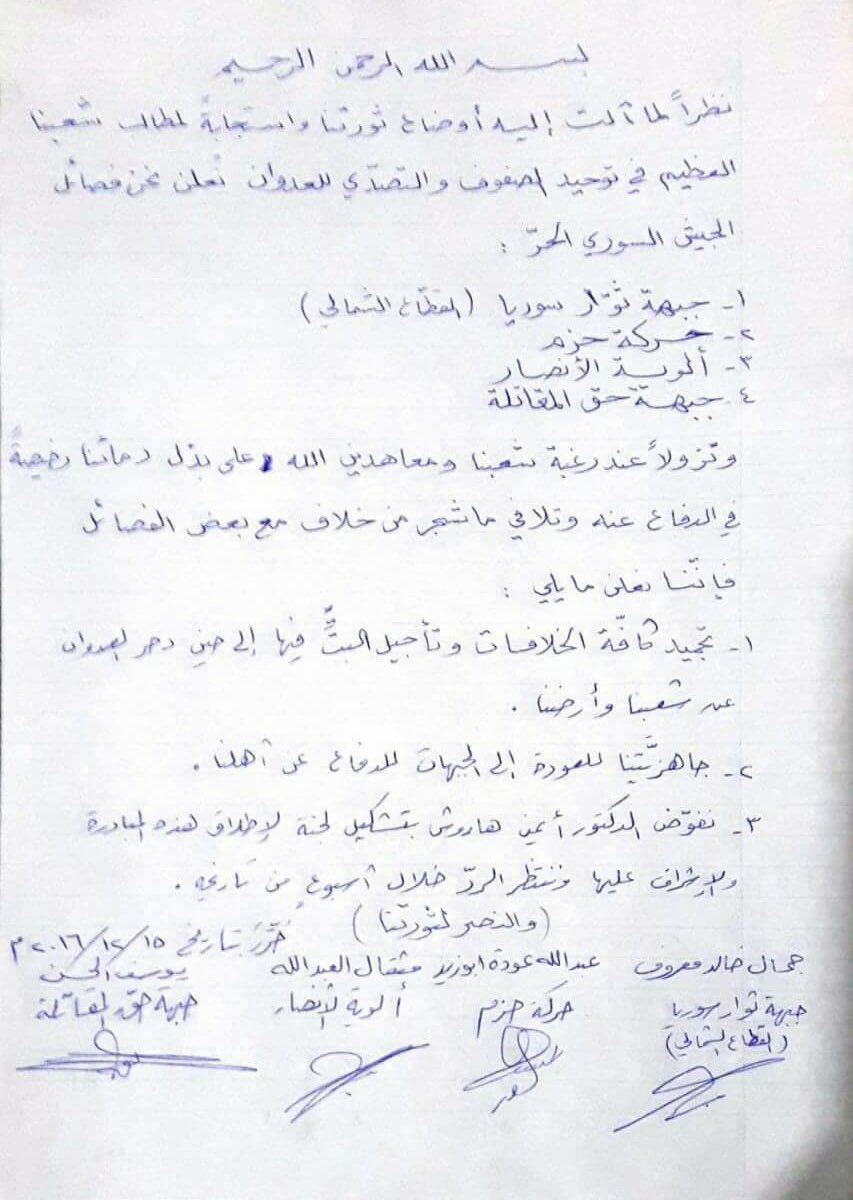 بسم الله الرحمن الرحيم
نظراً لما آلت إليه أوضاع ثورتنا واستجابةً لمطالب شعبنا
العظيم في توحيد الصفوف والتصدّي للعدوان نُعلن نحن فصائل
الجيش السوري الحرّ :
١- جبهة ثوّار سوريا (القطّاع الشمالي)
٢- حركة حزم
٣- ألوية الأنصار
٤- جبهة حق المقاتلة
ونزولاً عند رغبة شعبنا ومعاهدين الله على بذل دمائنا رخيصةً
في الدفاع عنه وتلافي ما شجر من خلاف مع بعض الفصائل
فإنّنا نعلن ما يلي :
١- تجميد كافّة الخلافات وتأجيل البتِّ فيها إلى حين دحر العدوان
عن شعبنا وأرضنا .
٢- جاهزيَّتنا للعودة إلى الجبهات للدفاع عن أهلنا .
٣- نفوّض الدكتور أيمن هاروش بتشكيل لجنة لإطلاق هذه المبادرة
والإشراف عليها وننتظر الردّ خلال أسبوعٍ من تاريخه .
(والنصر لثورتنا)
حُرِّرَ بتاريخ ٢٠١٦/١٢/١٥ م
جمال خالد معروف عبدالله عودة ابوزيد مثقال العبدالله يوسف الحسن
جبهة ثوار سوريا حركة حزم ألوية الأنصار جبهة حق المقاتلة
(القطاع الشمالي)